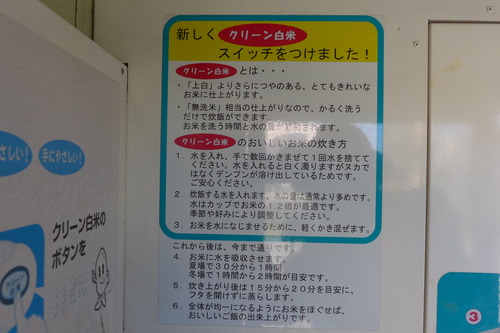 新しく クリーン白米
スイッチをつけました！
クリーン白米 とは・・・
・「上白」よりさらにつやのある、とてもきれいな
お米に仕上がります。
・「無洗米」相当の仕上がりなので、かるく洗う
だけで炊飯ができます。
お米を洗う時間と水の量が節約されます。
クリーン白米 のおいしいお米の炊き方
1．水を入れ、手で数回かきまぜて1回水を捨てて
ください。水を入れると白く濁りますがヌカで
はなくデンプンが溶け出しているためです。
ご安心ください。
2．炊飯する水を入れます。水の量は通常より多めです。
水はカップでお米の1.2倍が最適です。
季節や好みにより調整してください。
3．お米を水になじませるために、軽くかき混ぜます。
これから後は、今まで通りです。
4．お米に水を吸収させます。
夏場で30分から1時間
冬場で1時間から2時間が目安です。
5．炊き上がり後は15分から20分を目安に、
フタを開けずに蒸らします。
6．全体が均一になるようにお米をほぐせば、
おいしいご飯の出来上がりです。
さしい！
手にやさしい！
クリーン白米の
ボタンを
3